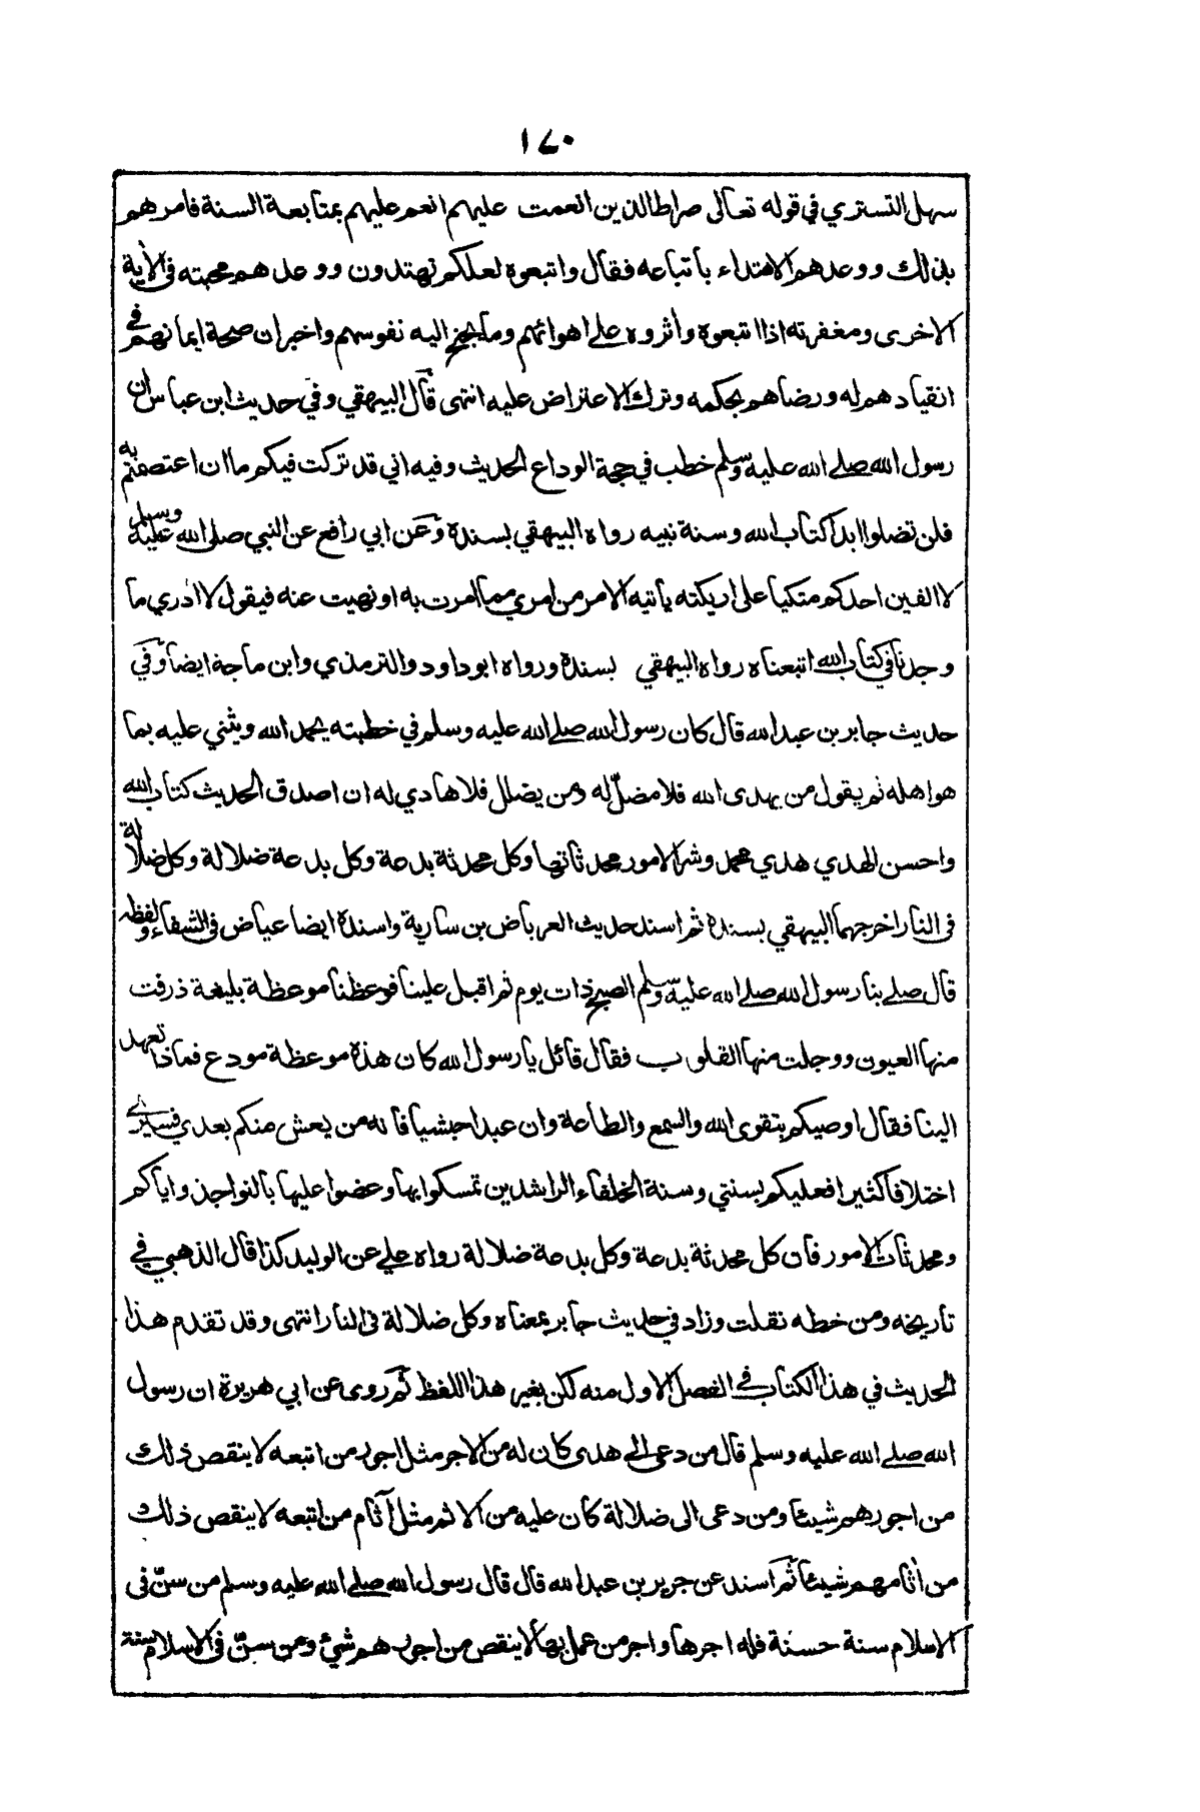 ١٧٠
سهل التستري في قوله تعالى صراط الذين انعمت عليهم انعم عليهم بمتابعة السنة فامرهم
بذلك ووعدهم الاهتداء باتباعه فقال واتبعوه لعلكم تهتدون ووعدهم محبته في الأية
الاخرى ومغفرته اذا اتبعوه وأثروه على اهوائهم وما يجنح اليه نفوسهم واخبر ان صحة ايمانهم في
انقيادهم له ورضاهم بحكمه وترك الاعتراض عليه انتهى قال البيهقي وفي حديث ابن عباس ان
رسول الله صلى الله عليه وسلم خطب في حجة الوداع الحديث وفيه اني قد تركت فيكم ما ان اعتصمتم به
فلن تضلوا ابدا كتاب الله وسنة نبيه رواه البيهقي بسنده وعن ابي رافع عن النبي صلى الله عليه وسلم
لا الفين احدكم متكيا على اريكته يأتيه الامر من امري مما امرت به او نهيت عنه فيقول لا ادري ما
وجدنا في كتاب الله اتبعناه رواه البيهقي بسنده ورواه ابو داود والترمذي وابن ماجة ايضا وفي
حديث جابر بن عبد الله قال كان رسول الله صلى الله عليه وسلم في خطبته يحمد الله ويثني عليه بما
هو اهله ثم يقول من يهدى الله فلا مضلّ له ومن يضلل فلا هادي له ان اصدق الحديث كتاب الله
واحسن الهدي هدي محمد وشر الامور محدثاتها وكل محدثة بدعة وكل بدعة ضلالة وكل ضلالة
في النار اخرجهما البيهقي بسنده ثم اسند حديث العرباض بن سارية واسنده ايضا عياض في الشفاء ولفظه
قال صلى بنا رسول الله صلى الله عليه وسلم الصبح ذات يوم ثم اقبل علينا فوعظنا موعظة بليغة ذرفت
منها العيون ووجلت منها القلوب فقال قائل يا رسول الله كان هذه موعظة مودع فماذا تعهد
الينا فقال اوصيكم بتقوى الله والسمع والطاعة وان عبدا حبشيا فانه من يعش منكم بعدي فسيرى
اختلافا كثيرا فعليكم بسنتي وسنة الخلفاء الراشدين تمسكوا بها وعضوا عليها بالنواجذ واياكم
ومحدثات الامور فان كل محدثة بدعة وكل بدعة ضلالة رواه علي عن الوليد كذا قال الذهبي في
تاريخه ومن خطه نقلت وزاد في حديث جابر بمعناه وكل ضلالة في النار انتهى وقد تقدم هذا
الحديث في هذا الكتاب في الفصل الاول منه لكن بغير هذا اللفظ ثم روى عن ابي هريرة ان رسول
الله صلى الله عليه وسلم قال من دعى الى هدى كان له من الاجر مثل اجور من اتبعه لا ينقص ذلك
من اجورهم شيئا ومن دعى الى ضلالة كان عليه من الاثم مثل آثام من اتبعه لا ينقص ذلك
من أثامهم شيئا ثم اسند عن جرير بن عبد الله قال قال رسول الله صلى الله عليه وسلم من سنّ في
الاسلام سنة حسنة فله اجرها واجر من عمل بها لا ينقص من اجورهم شيئ ومن سنّ في الاسلام سنة